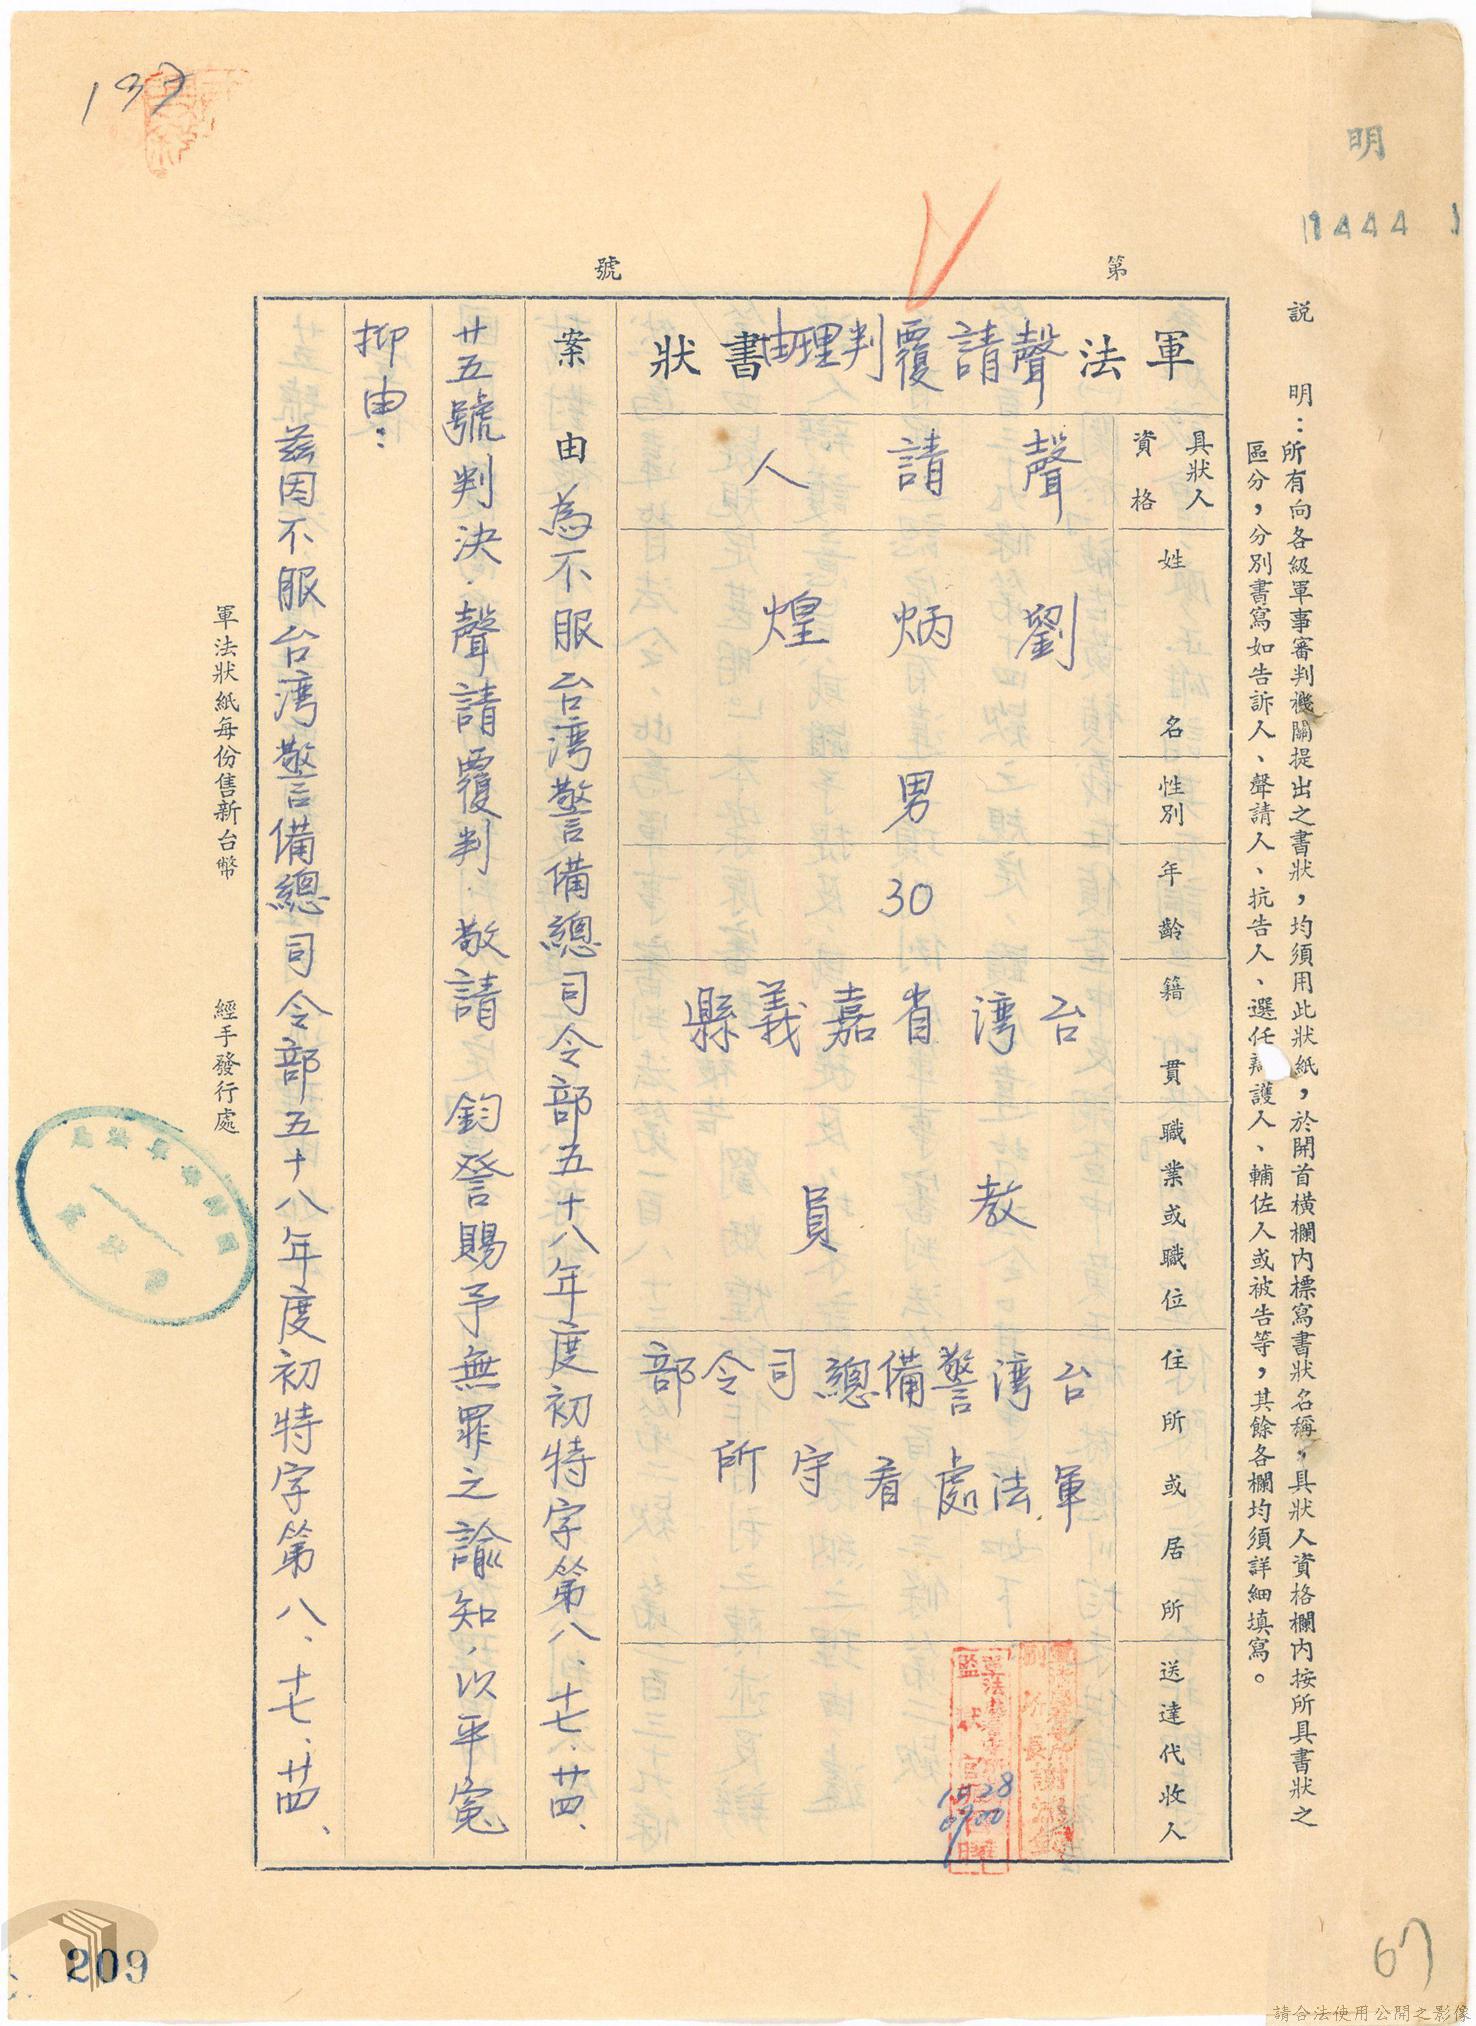 明
1444
137
第　　　號
説　明：所有向各級軍事審判機關提出之書狀，均須用此狀紙，於開首橫欄內標寫書狀名稱，具狀人資格欄內按所具書狀之
區分，分別書寫如告訴人、聲請人、抗告人、選任辯護人、輔佐人或被告等，其餘各欄均須詳細填寫。
軍法聲請覆判理由書狀
具狀人資格
聲請人
姓名
劉炳煌
性別
男
年齡
30
籍貫
台湾省嘉義縣
職業或職位
教員
住所或居所
台湾警備總司令部
軍法處看守所
送達代收人
案由 為不服台湾警備總司令部五十八年度初特字第八、十七、廿四、
廿五號判決．聲請覆判．敬請　鈞詧賜予無罪之諭知，以平寃
抑由：
茲因不服台湾警備總司令部五十八年度初特字第八、十七、廿四、
軍法狀紙每份售新台幣
經手發行處
209
67
請合法使用公開之影像